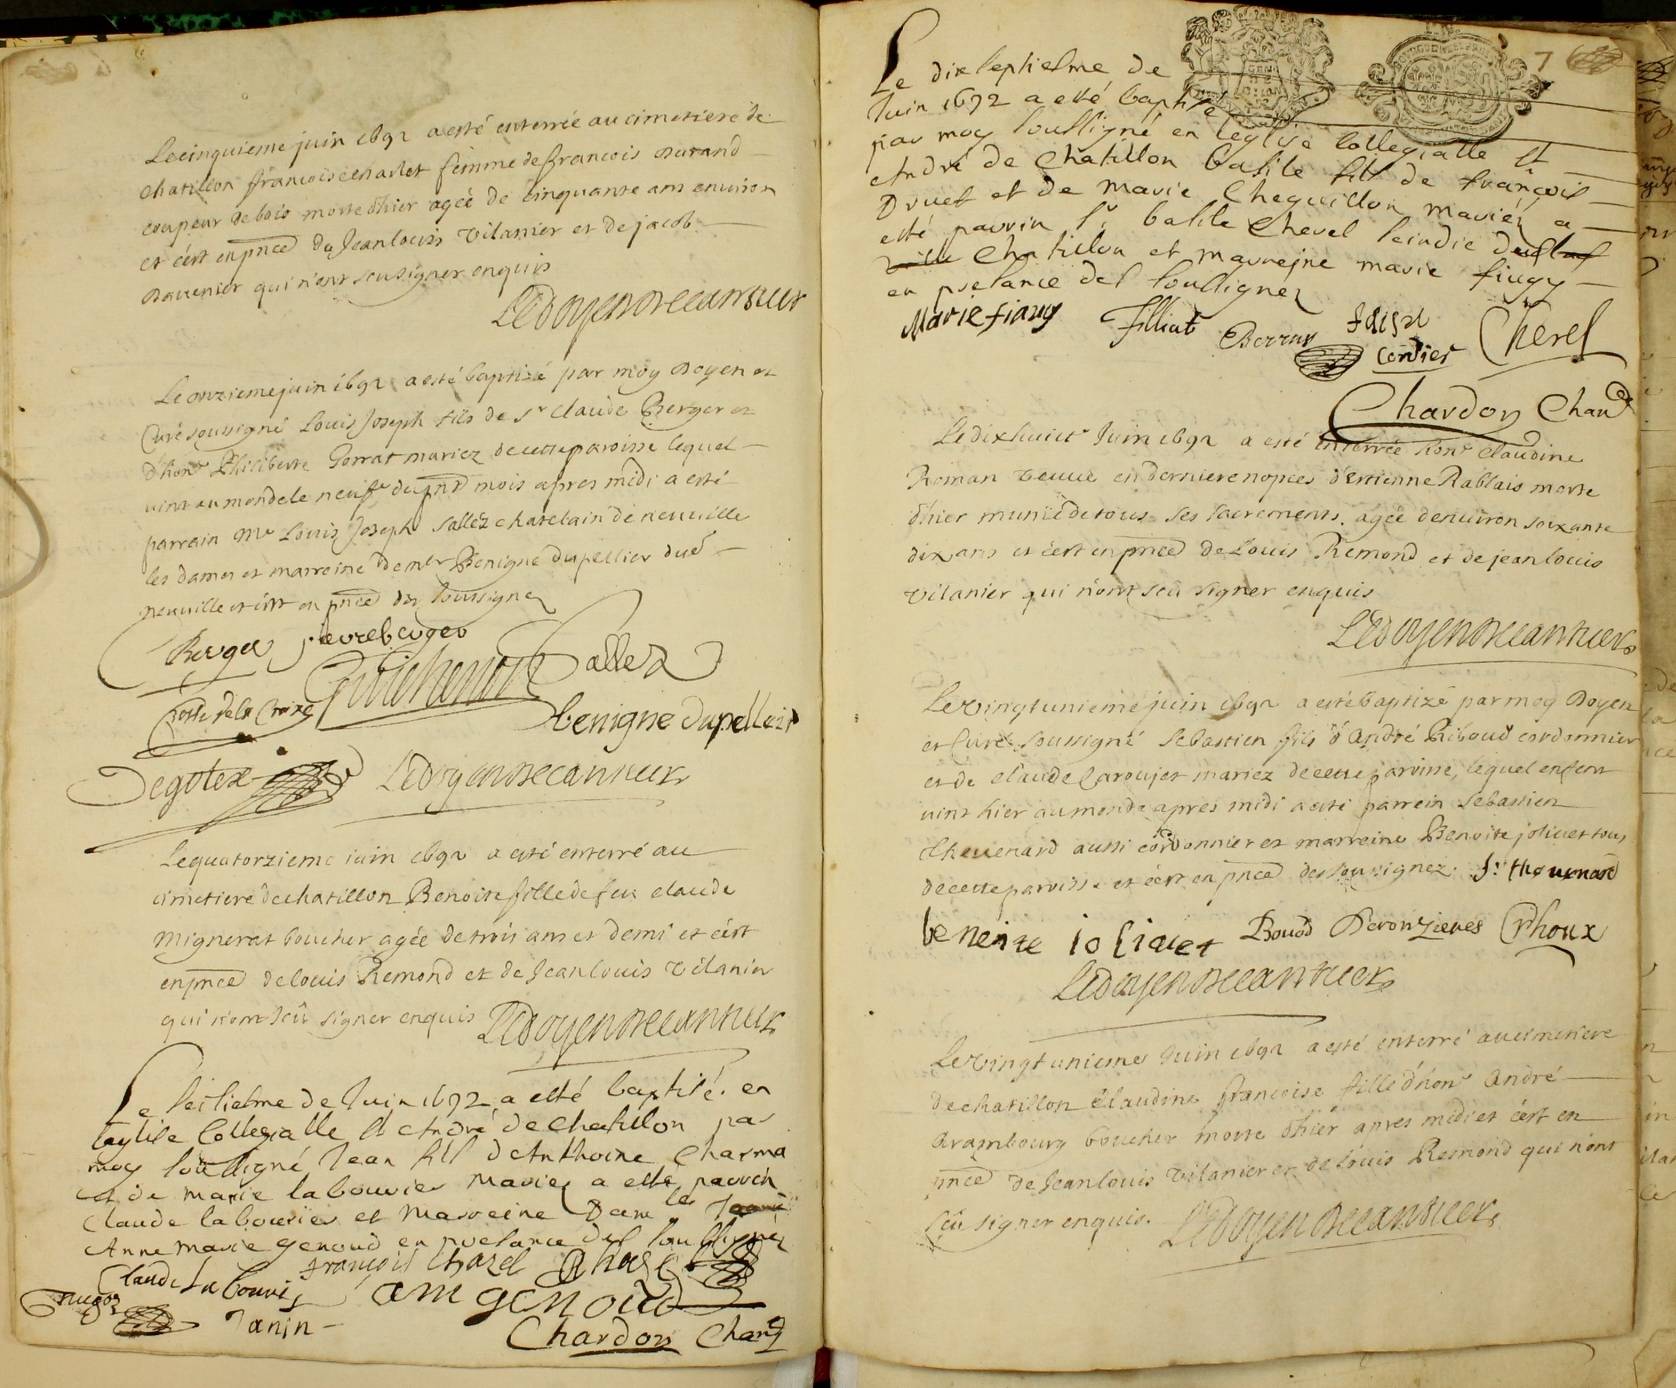 Le cinquieme juin 1692 a esté enterrée au cimetiere de
chatillon francoise charlet femme de francois Durand
coupeur de bois morte d'hier agée de cinquante ans environ
et c'est en pnce de Jean louis vilanier et de jacob
qui n'ont seu signer enquis
Ledoyen
Le onzieme juin 1692 a esté baptizé par moy Doyen et
Curé soussigné Louis Joseph fils de Sr Claude Berger et
d'honn Philiberte mariez de cette paroisse lequel
vint au monde le neufe du pnt mois apres midi a esté
parrain Mr Louis Joseph Sallez chatelain de neuville
les dames et marreine Benigne dupellier dud
neuville et c'est en pnce des soussignez
Berger pierre berger
Sallez
benigne dupellier
Degolex Ledoyen
Le quatorzieme juin 1692 a esté enterré au
cimetiere de chatillon Benoite fille de feu claude
Mignerat boucher agée de trois ans et demi et c'est
en pnce de louis Remond et de Jean louis vilanier
qui n'ont sceu signer enquis Ledoyen
Le seiziesme de Juin 1692 a esté baptisé en
l'eglise Collegialle St André de Chatillon par
moy soussigné Jean fils d'Anthoine Charma
et de marie labouvier mariez a esté parrein
Claude labouvier et Marreine
Anne marie genoud en presance des soussignez
françois Chazel
Claude La bouvi
am genoud
Janin
Chardon Chane
7
Le dixseptiesme de
Juin 1692 a esté baptisé
par moy soussigné en leglise Collegialle St
André de Chatillon basile fils de françois
Druet et de marie Chequillon mariéz a
esté parrin Sr basile Cherel scindic
Chatillon et marreine marie fiugy
en presance des soussignez
Marie fiaugy Filliat cordier Cherel
Chardon Chane
Le dixhuict Juin 1692 a esté enterrée honn claudine
Roman veuve en derniere nopces d'estienne Rablais morte
d'hier munie de tous ses sacrements agée d'environ soixante
dix ans et c'est en pnce de Louis Remond et de jean louis
vilanier qui n'ont seu signer enquis
Ledoyen
Le vingtunieme juin 1692 a esté baptizé par moy Doyen
et Curé soussigné Sebastien fils d'André Riboud cordonnier
et de claude Caroujet mariez de cette paroisse, lequel enfent
vint hier au monde apres midi a esté parrein Sebastien
thevenard aussi cordonnier et marreine Benoite joliuet tous
de cette paroisse et c'est en pnce des soussignez. S. thevenard
beneite ioliuet
Ledoyen
Le vingtuniesme Juin 1692 a esté enterré au cimetiere
de chatillon claudine francoise fille d'honn André
Arambourg boucher morte d'hier apres midi et c'est en
pnce de Jean louis vilanier et de louis Remond qui n'ont
sçeu signer enquis. Ledoyen